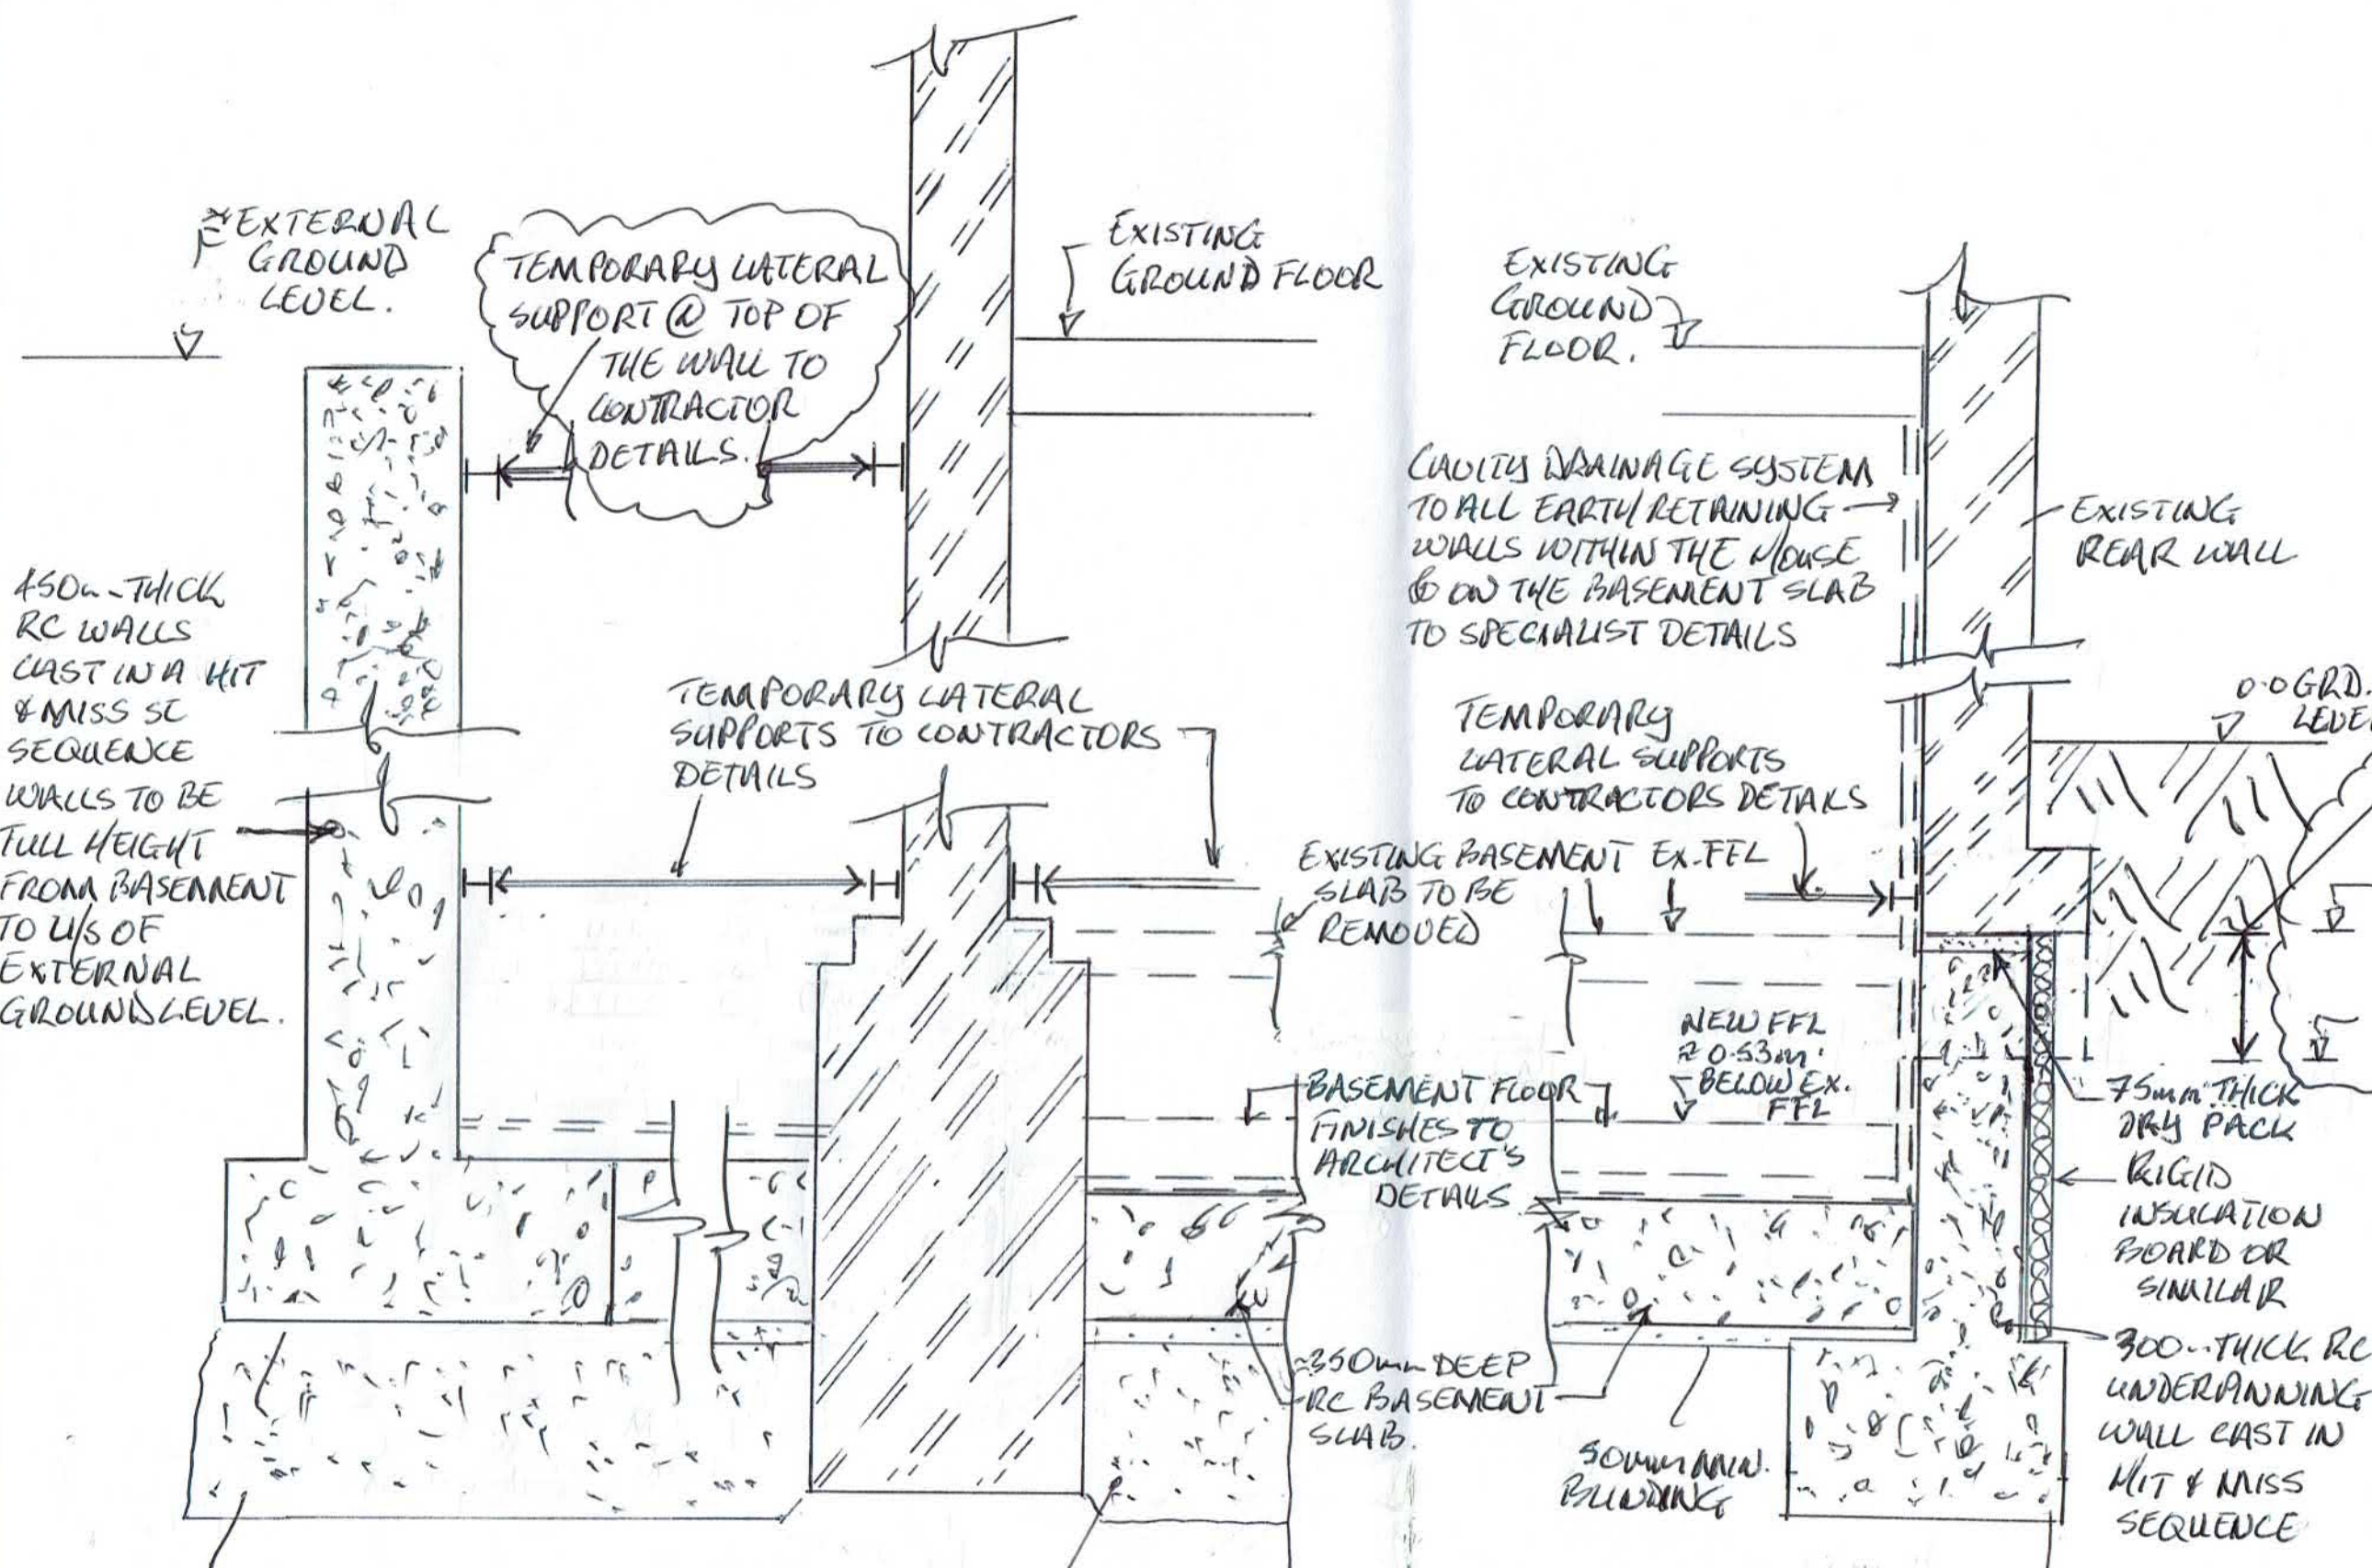 ≈ EXTERNAL
GROUND
LEVEL.
TEMPORARY LATERAL
SUPPORT @ TOP OF
THE WALL TO
CONTRACTOR
DETAILS.
EXISTING
GROUND FLOOR
EXISTING
GROUND
FLOOR.
CAVITY DRAINAGE SYSTEM
TO ALL EARTH RETAINING
WALLS WITHIN THE HOUSE
& ON THE BASEMENT SLAB
TO SPECIALIST DETAILS
EXISTING
REAR WALL
450mm THICK
RC WALLS
CAST IN A HIT
& MISS
SEQUENCE
WALLS TO BE
FULL HEIGHT
FROM BASEMENT
TO U/S OF
EXTERNAL
GROUND LEVEL.
TEMPORARY LATERAL
SUPPORTS TO CONTRACTORS
DETAILS
TEMPORARY
LATERAL SUPPORTS
TO CONTRACTORS DETAILS
0.0 GRD.
LEVEL
EXISTING BASEMENT
SLAB TO BE
REMOVED
EX. FFL
NEW FFL
≈ 0.53m
BELOW EX.
FFL
BASEMENT FLOOR
FINISHES TO
ARCHITECT'S
DETAILS
75mm THICK
DRY PACK
RIGID
INSULATION
BOARD OR
SIMILAIR
≈350mm DEEP
RC BASEMENT
SLAB.
50mm MIN.
BLINDING
300mm THICK RC
UNDERPINNING
WALL CAST IN
HIT & MISS
SEQUENCE